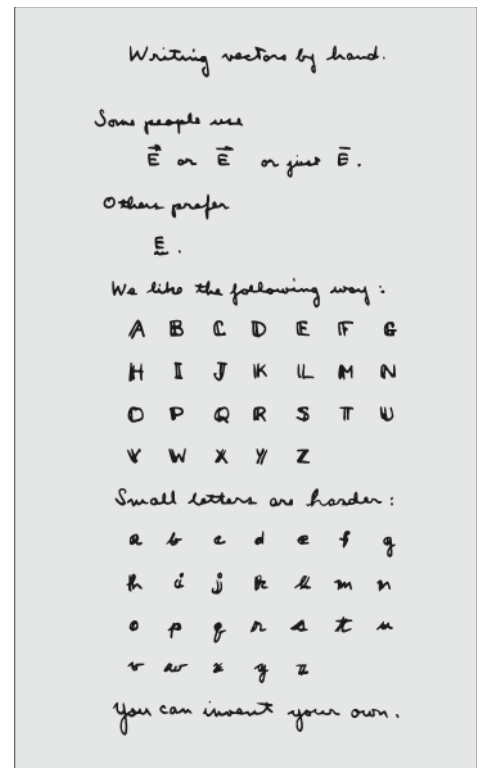 Writing vectors by hand.
Some people use
E⃗ or E⃗ or just Ē.
Others prefer
Ḛ.
We like the following way:
𝔸 𝔹 ℂ 𝔻 𝔼 𝔽 𝔾
ℍ 𝕀 𝕁 𝕂 𝕃 𝕄 ℕ
𝕆 ℙ ℚ ℝ 𝕊 𝕋 𝕌
𝕍 𝕎 𝕏 𝕐 ℤ
Small letters are harder:
a b c d e f g
h i j k l m n
o p q r s t u
v w x y z
You can invent your own.